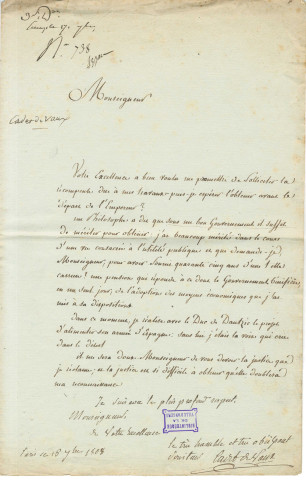 N° 738
Monseigneur
Cadet de Vaux
Votre Excellence a bien voulu me permettre de solliciter la
récompense due à mes travaux. puis-je espérer l'obtenir avant le
départ de l'Empereur ?
un Philosophe a dit que sous un bon Gouvernement il suffit
de mériter pour obtenir. j'ai beaucoup mérité dans le cours
d'une vie consacrée à l'utilité publique et que demandé-je,
Monseigneur, pour avoir fourni quarante cinq ans d'une telle
carrière ? une pension que répond à ce dont le Gouvernement bénéficiera
en un seul jour, de l'adoption des moyens économiques que j'ai
mis à sa disposition.
dans ce moment, je réalise avec le Duc de Dantzic le projet
d'alimenter son armée d'Espagne; sans lui j'étais la voix qui crie
dans le désert
il me sera doux Monseigneur de vous devoir la justice que
je réclame; et la justice est si difficile à obtenir qu'elle doublera
ma reconnaissance
Je suis avec le plus profond respect
Monseigneur
de Votre Excellence
le très humble et très obéissant
serviteur Cadet de Vaux
Paris ce 15 7bre 1808